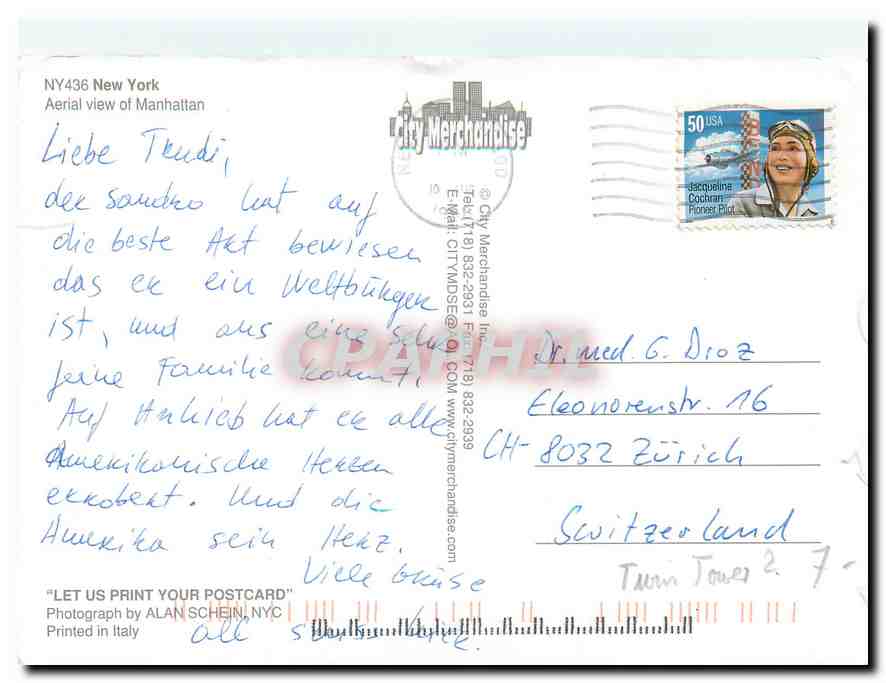 NY436 New York
Aerial view of Manhattan
City Merchandise
50 USA
Jacqueline
Cochran
Pioneer Pilot
Liebe Trudi,
der Sandro hat auf
die beste Art bewiesen
das er ein Weltbürger
ist, und aus eine sehr
feine Familie kommt.
Auf Anhieb hat er alle
Amerikanische Herzen
erobert. Und die
Amerika sein Herz.
Viele Grüsse
all
© City Merchandise Inc.
Tel: (718) 832-2931 Fax: (718) 832-2939
E-Mail: CITYMDSE@AOL.COM www.citymerchandise.com
CPARHIL
Dr. med. G. Droz
Eleonorenstr. 16
CH- 8032 Zürich
Switzerland
Twin Tower 2. 7-
"LET US PRINT YOUR POSTCARD"
Photograph by ALAN SCHEIN, NYC
Printed in Italy